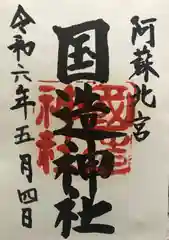 阿蘇北宮
国造神社
令和六年五月四日